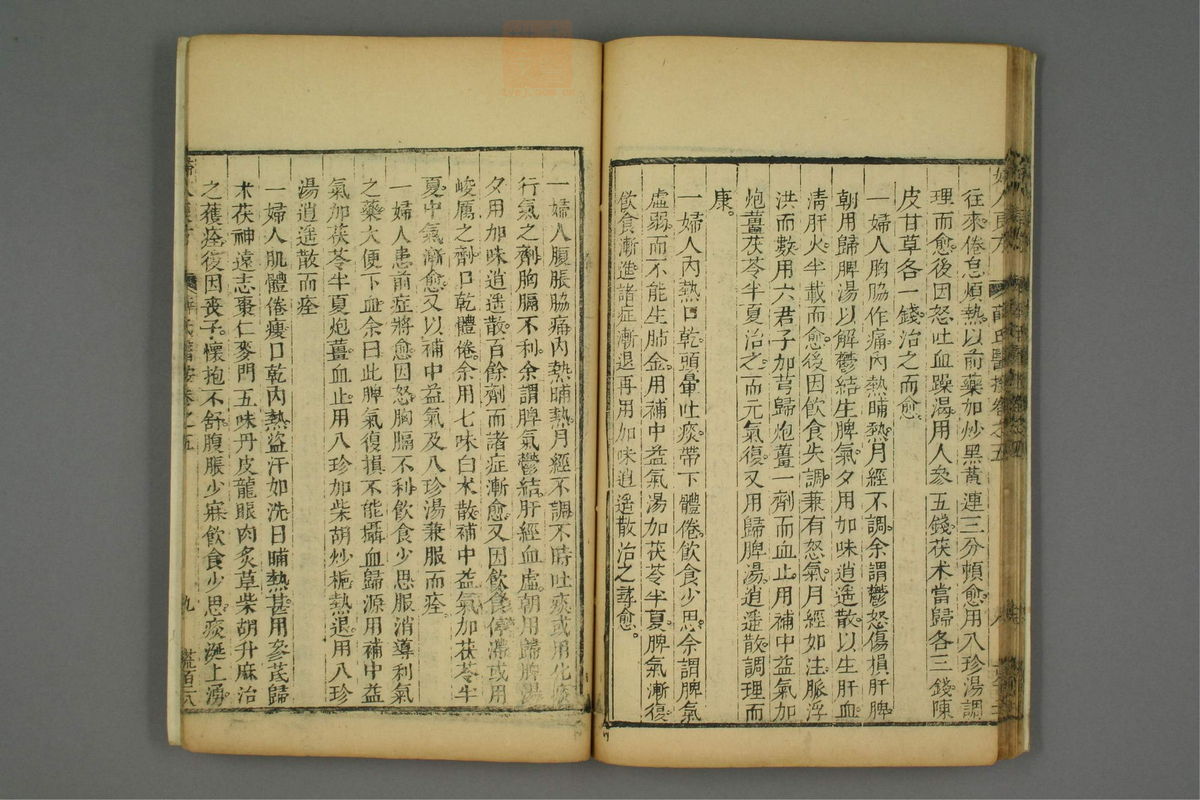 往來倦怠煩熱以前藥加炒黑黃連三分頓愈用八珍湯調
理而愈後因怒吐血躁渴用人參五錢茯朮當歸各三錢陳
皮甘草各一錢治之而愈
一婦人胸脇作痛內熱晡熱月經不調余謂鬱怒傷損肝脾
朝用歸脾湯以解鬱結生脾氣夕用加味逍遙散以生肝血
清肝火半載而愈後因飲食失調兼有怒氣月經如注脈浮
洪而數用六君子加芎歸炮薑一劑而血止用補中益氣加
炮薑茯苓半夏治之而元氣復又用歸脾湯逍遙散調理而
康
一婦人內熱口乾頭暈吐痰帶下體倦飲食少思余謂脾氣
虛弱而不能生肺金用補中益氣湯加茯苓半夏脾氣漸復
飲食漸進諸症漸退再用加味逍遙散治之尋愈
一婦人腹脹脇痛內熱晡熱月經不調不時吐痰或用化痰
行氣之劑胸膈不利余謂脾氣鬱結肝經血虛朝用歸脾湯
夕用加味逍遙散百餘劑而諸症漸愈又因飲食停滯或用
峻厲之劑口乾體倦余用七味白朮散補中益氣加茯苓半
夏中氣漸愈又以補中益氣及八珍湯兼服而痊
一婦人患前症將愈因怒胸膈不利飲食少思服消導利氣
之藥大便下血余曰此脾氣復損不能攝血歸源用補中益
氣加茯苓半夏炮薑血止用八珍加柴胡炒梔熱退用八珍
湯逍遙散而痊
一婦人肌體倦瘦口乾內熱盜汗如洗日晡熱甚用參芪歸
朮茯神遠志棗仁麥門五味丹皮龍眼肉炙草柴胡升麻治
之獲痊後因喪子懷抱不舒腹脹少寐飲食少思痰涎上湧
薛氏醫按卷之五
九